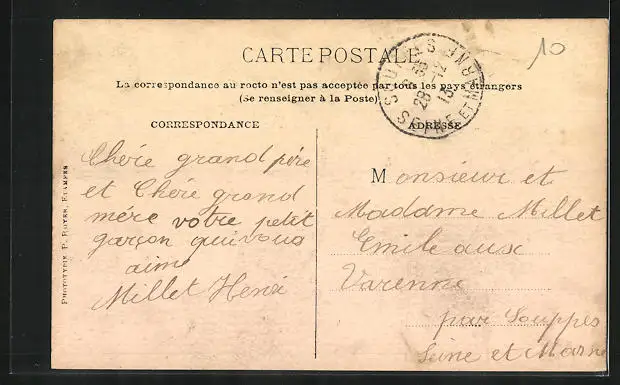 10
CARTE POSTALE
La correspondance au recto n'est pas acceptée par tous les pays étrangers
(Se renseigner à la Poste)
SOUPPES
28 -12
13
SEINE ET MARNE
CORRESPONDANCE
ADRESSE
Chére grand pére
et Chére grand
mére votre petit
garçon qui vous
aime
Millet Henri
Monsieur et
Madame Millet
Emile aux
Varenne
par Souppes
Seine et Marne
PHOTOTYPIE P. ROYER, ETAMPES